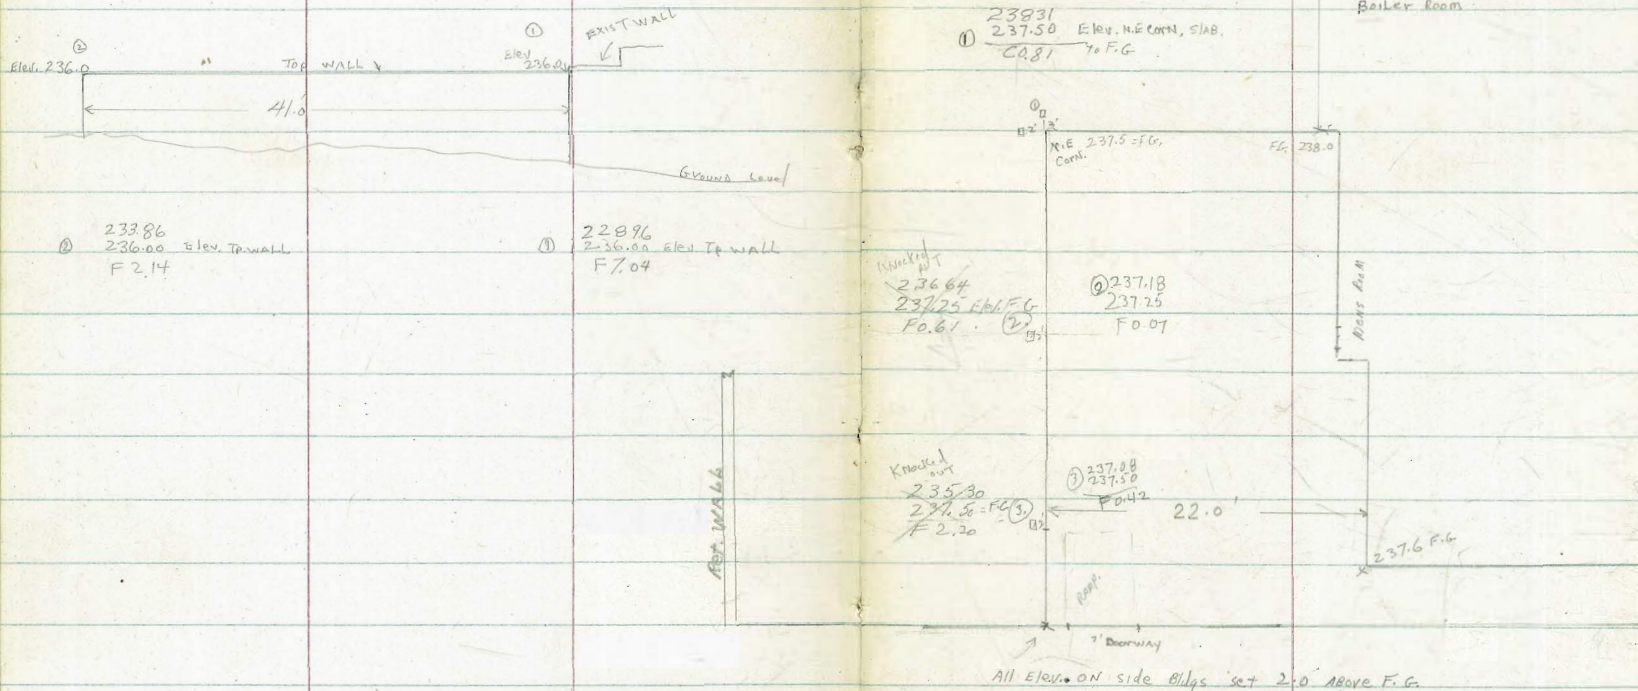 ②
①
EXIST WALL
Elev. 236.0
Top WALL
Elev
236.0
41.0
GROUND Level
② 233.86
236.00 Elev. Tp. WALL
F 2.14
① 22896
236.00 Elev Tp WALL
F 7.04
Ret. WALL
Boiler Room
① 23831
237.50 Elev. N.E CORN, SLAB.
C0.81 To F.G
①
2' 3'
N.E 237.5 = F.G.
CORN.
F.G. 238.0
Knocked
OUT
23664
237.25 Elev. F.G
F0.61 ②
2'
② 237.18
237.25
F0.07
MENS ROOM
Knocked
OUT
235.30
237.50 = F.G ③
F 2.20
③ 237.08
237.50
F0.42
22.0'
237.6 F.G
RAMP.
7' DOORWAY
All Elev. ON side Bldgs set 2.0 ABOVE F.G.